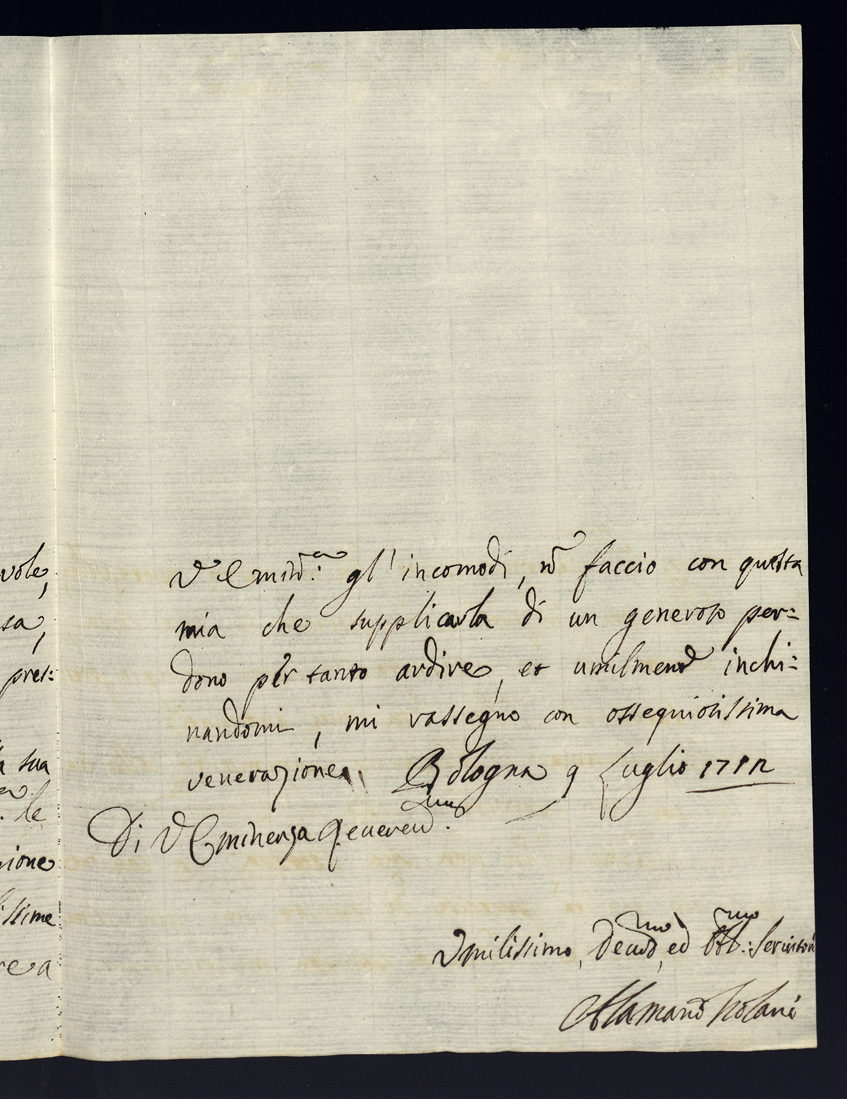 vole,
sa,
pres:
a sua
le
sione
issime
re a
V. Emin.za gl'incomodi, nō faccio con questa
mia che supplicarla di un generoso per=
dono per tanto ardire, et umilmente inchi=
nandomi, mi rassegno con ossequiosissima
venerazione. Bologna 9 Luglio
Di V. Eminenza Reverend.ma
Vmilissimo, Devmo, ed Obb.mo: Servitore
Alamano Isolani